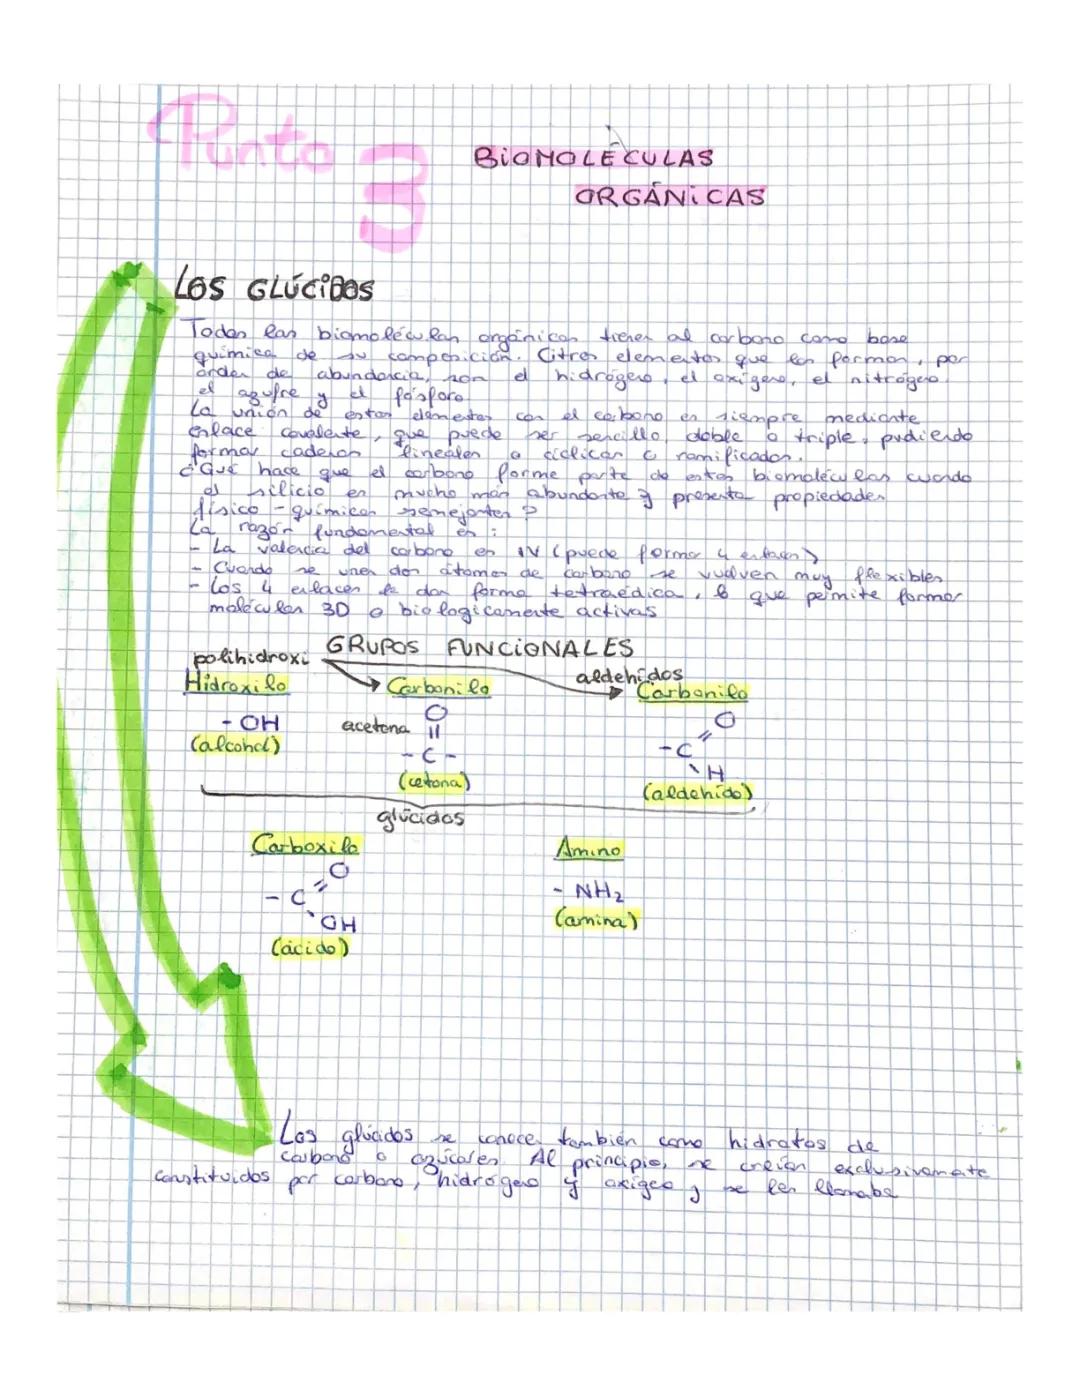 Punto 3
BIOMOLÉCULAS
ORGÁNICAS
LOS GLÚCIDOS
Todas las biomoléculas orgánicas tienen al carbono como base
química de su composición. Otros elementos que las forman, por
orden de abundancia, son el hidrógeno, el oxígeno, el nitrógeno,
el azufre y el fósforo
La unión de estos elementos con el carbono es siempre mediante
enlace covalente, que puede ser sencillo, doble o triple, pudiendo
formar cadenas lineales o cíclicas o ramificadas.
¿Qué hace que el carbono forme parte de estas biomoléculas cuando
el silicio es mucho más abundante y presenta propiedades
físico-químicas semejantes?
La razón fundamental es:
- La valencia del carbono es IV (puede formar 4 enlaces)
- Cuando se unen dos átomos de carbono se vuelven muy flexibles
- Los 4 enlaces le dan forma tetraédica, lo que permite formar
moléculas 3D o biologicamente activas
GRUPOS FUNCIONALES
polihidroxi
aldehídos
Hidroxilo Carbonilo Carbonilo
- OH
(alcohol)
acetona
O
||
- C -
(cetona)
O
- C
H
(aldehído)
glúcidos
Carboxilo Amino
O
- C
OH
(ácido)
- NH₂
(amina)
Los glúcidos se conocen también como hidratos de
carbono o azúcares. Al principio, se creían exclusivamate
constituidos por carbono, hidrógeno y oxígeo y se les llamaba